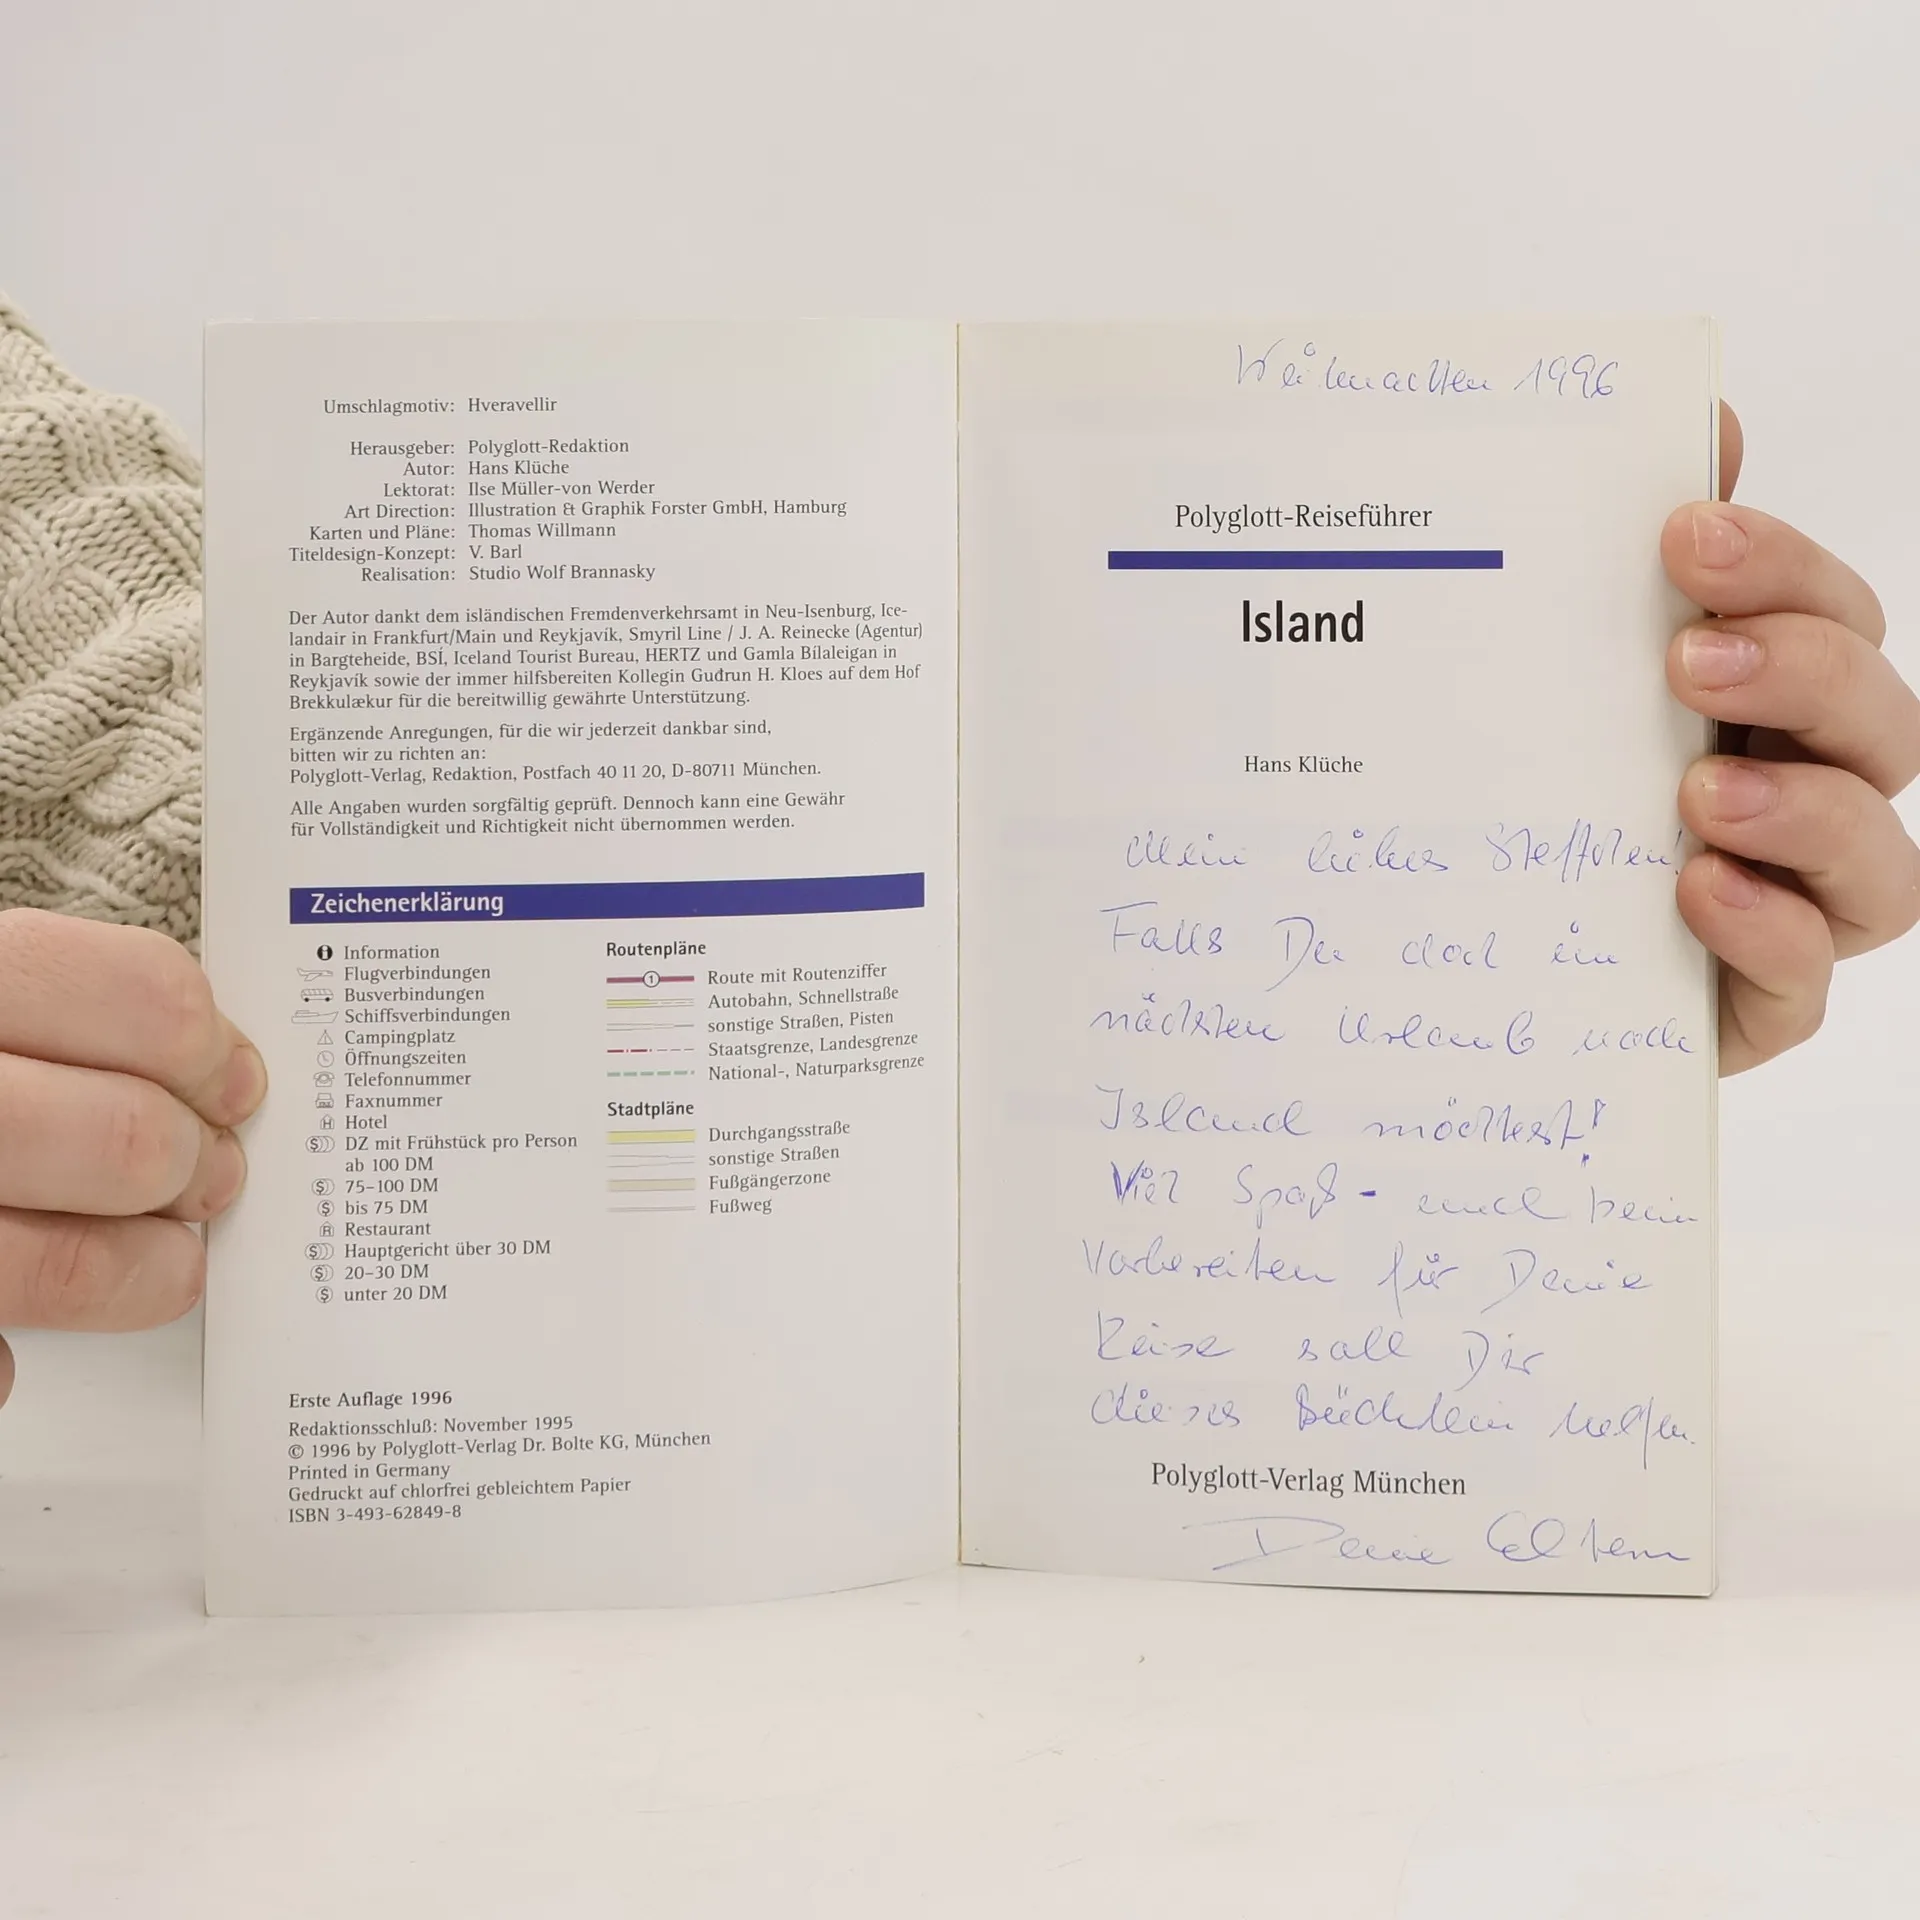 Umschlagmotiv: Hveravellir
Herausgeber: Polyglott-Redaktion
Autor: Hans Klüche
Lektorat: Ilse Müller-von Werder
Art Direction: Illustration & Graphik Forster GmbH, Hamburg
Karten und Pläne: Thomas Willmann
Titeldesign-Konzept: V. Barl
Realisation: Studio Wolf Brannasky
Der Autor dankt dem isländischen Fremdenverkehrsamt in Neu-Isenburg, Ice-
landair in Frankfurt/Main und Reykjavík, Smyril Line / J. A. Reinecke (Agentur)
in Bargteheide, BSÍ, Iceland Tourist Bureau, HERTZ und Gamla Bílaleigan in
Reykjavík sowie der immer hilfsbereiten Kollegin Guđrun H. Kloes auf dem Hof
Brekkulækur für die bereitwillig gewährte Unterstützung.
Ergänzende Anregungen, für die wir jederzeit dankbar sind,
bitten wir zu richten an:
Polyglott-Verlag, Redaktion, Postfach 40 11 20, D-80711 München.
Alle Angaben wurden sorgfältig geprüft. Dennoch kann eine Gewähr
für Vollständigkeit und Richtigkeit nicht übernommen werden.
Zeichenerklärung
Information
Flugverbindungen
Busverbindungen
Schiffsverbindungen
Campingplatz
Öffnungszeiten
Telefonnummer
Faxnummer
Hotel
DZ mit Frühstück pro Person
ab 100 DM
75–100 DM
bis 75 DM
Restaurant
Hauptgericht über 30 DM
20–30 DM
unter 20 DM
Routenpläne
1 Route mit Routenziffer
Autobahn, Schnellstraße
sonstige Straßen, Pisten
Staatsgrenze, Landesgrenze
National-, Naturparksgrenze
Stadtpläne
Durchgangsstraße
sonstige Straßen
Fußgängerzone
Fußweg
Erste Auflage 1996
Redaktionsschluß: November 1995
© 1996 by Polyglott-Verlag Dr. Bolte KG, München
Printed in Germany
Gedruckt auf chlorfrei gebleichtem Papier
ISBN 3-493-62849-8
Weihnachten 1996
Polyglott-Reiseführer
Island
Hans Klüche
Mein liebes Steffchen!
Falls Du doch im
nächsten Urlaub nach
Island möchtest!
Viel Spaß - und beim
Vorbereiten für Deine
Reise soll Dir
dieses Büchlein helfen.
Polyglott-Verlag München
Deine Eltern